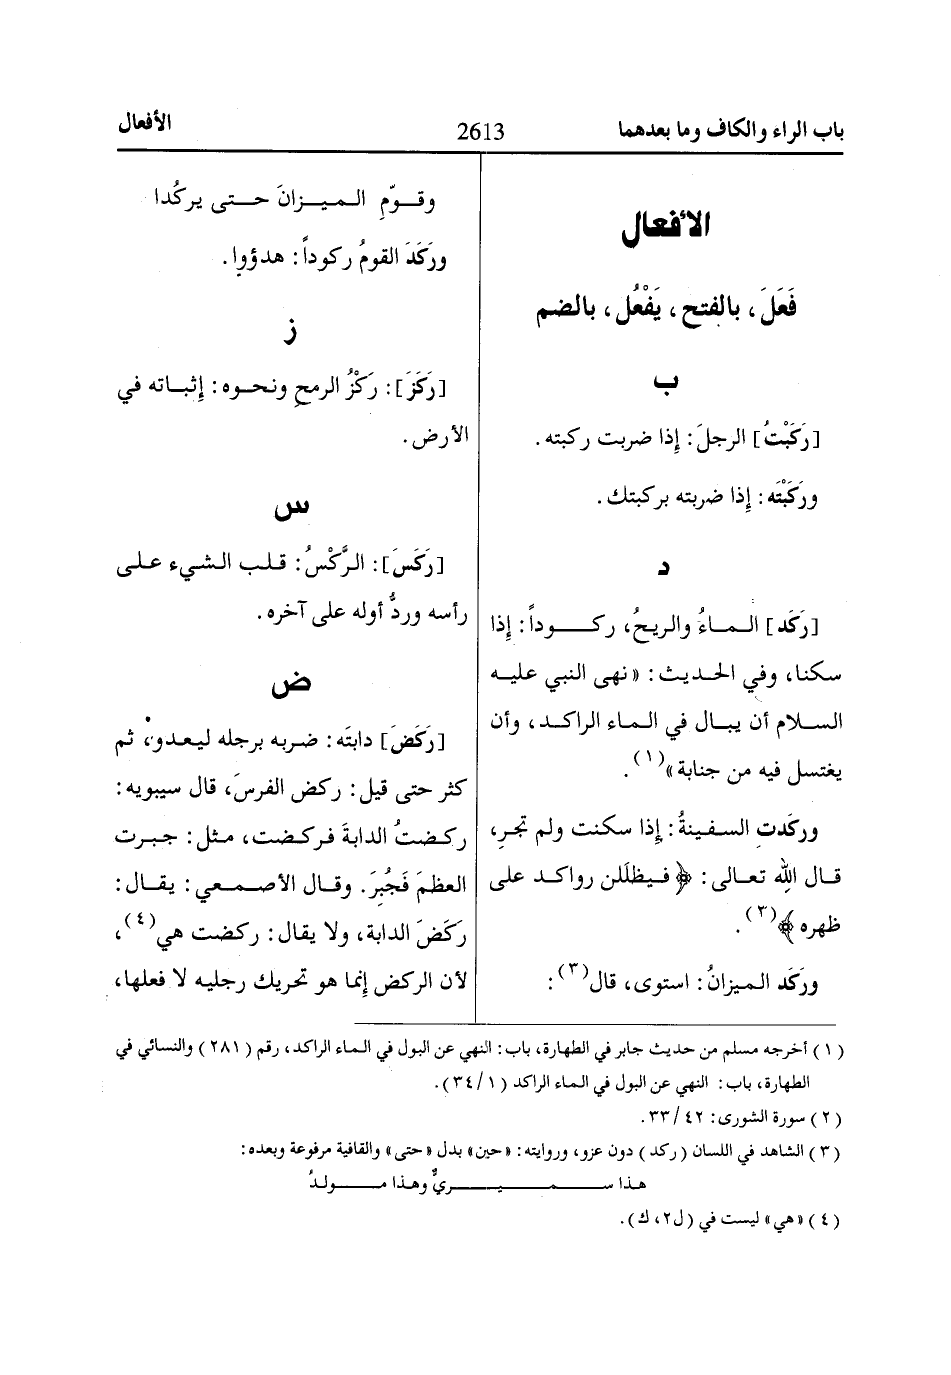 باب الراء والكاف وما بعدهما
2613
الأفعال
الأفعال
فَعَلَ، بالفتح، يَفْعُل، بالضم
ب
[رَكَبْتُ] الرجلَ: إذا ضربت ركبته.
ورَكَبْتَه: إذا ضربته بركبتك.
د
[رَكَد] الماءُ والريحُ، ركوداً: إذا
سكنا، وفي الحديث: «نهى النبي عليه
السلام أن يبال في الماء الراكد، وأن
يغتسل فيه من جنابة»(١).
وركَدت السفينةُ: إذا سكنت ولم تجرِ،
قال الله تعالى: ﴿فيظلَلن رواكد على
ظهره﴾(٢).
وركَد الميزانُ: استوى، قال(٣):
وقوّمِ الميزانَ حتى يركُدا
وركَدَ القومُ ركوداً: هدؤوا.
ز
[رَكَزَ]: رَكْزُ الرمحِ ونحوه: إثباته في
الأرض.
س
[رَكَسَ]: الرَّكْسُ: قلب الشيء على
رأسه وردُّ أوله على آخره.
ض
[رَكَضَ] دابتَه: ضربه برجله ليعدو، ثم
كثر حتى قيل: ركض الفرسَ، قال سيبويه:
ركضتُ الدابةَ فركضت، مثل: جبرت
العظمَ فَجُبرَ. وقال الأصمعي: يقال:
ركَضَ الدابة، ولا يقال: ركضت هي(٤)،
لأن الركض إنما هو تحريك رجليه لا فعلها،
(١) أخرجه مسلم من حديث جابر في الطهارة، باب: النهي عن البول في الماء الراكد، رقم (٢٨١) والنسائي في
الطهارة، باب: النهي عن البول في الماء الراكد (٣٤/١).
(٢) سورة الشورى: ٣٣/٤٢.
(٣) الشاهد في اللسان (ركد) دون عزو، وروايته: «حين» بدل «حتى» والقافية مرفوعة وبعده:
هذا سميريٌّ وهذا مولدُ
(٤) «هي» ليست في (ل٢، ك).